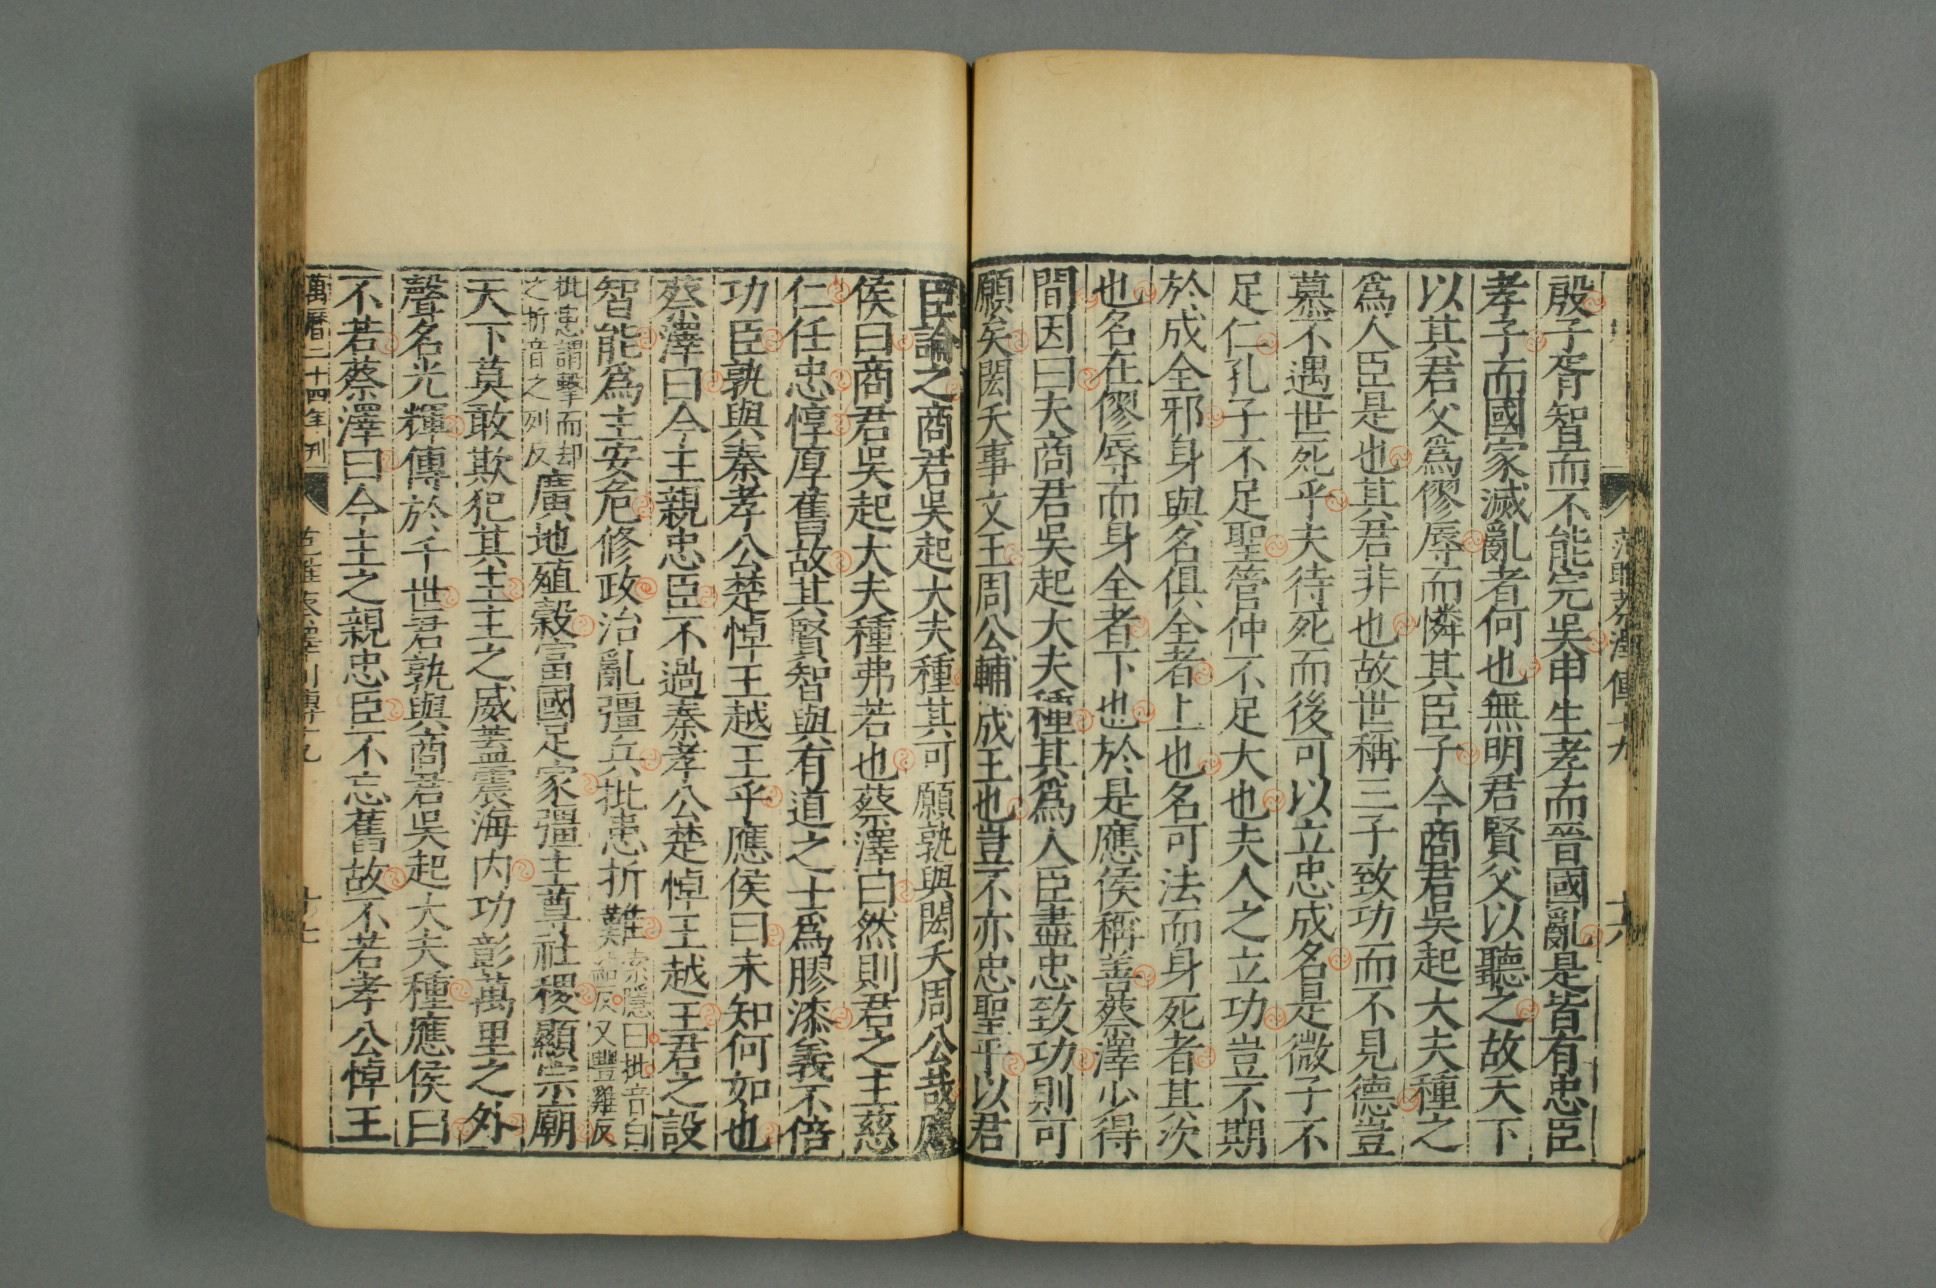 范睢蔡澤傳十九
十六
殷子胥智而不能完吳申生孝而晉國亂是皆有忠臣
孝子而國家滅亂者何也無明君賢父以聽之故天下
以其君父爲僇辱而憐其臣子今商君吳起大夫種之
爲人臣是也其君非也故世稱三子致功而不見德豈
慕不遇世死乎夫待死而後可以立忠成名是微子不
足仁孔子不足聖管仲不足大也夫人之立功豈不期
於成全邪身與名俱全者上也名可法而身死者其次
也名在僇辱而身全者下也於是應侯稱善蔡澤少得
間因曰夫商君吳起大夫種其爲人臣盡忠致功則可
願矣閎夭事文王周公輔成王也豈不亦忠聖乎以君
臣論之商君吳起大夫種其可願孰與閎夭周公哉應
侯曰商君吳起大夫種弗若也蔡澤曰然則君之主慈
仁任忠惇厚舊故其賢智與有道之士爲膠漆義不倍
功臣孰與秦孝公楚悼王越王乎應侯曰未知何如也
蔡澤曰今主親忠臣不過秦孝公楚悼王越王君之設
智能爲主安危修政治亂彊兵批患折難索隱曰批音白結反又豐雞反
批患謂擊而却之折音之列反廣地殖穀富國足家彊主尊社稷顯宗廟
天下莫敢欺犯其主主之威蓋震海內功彰萬里之外
聲名光輝傳於千世君孰與商君吳起大夫種應侯曰
不若蔡澤曰今主之親忠臣不忘舊故不若孝公悼王
萬曆二十四年刊
范睢蔡澤列傳十九
十七